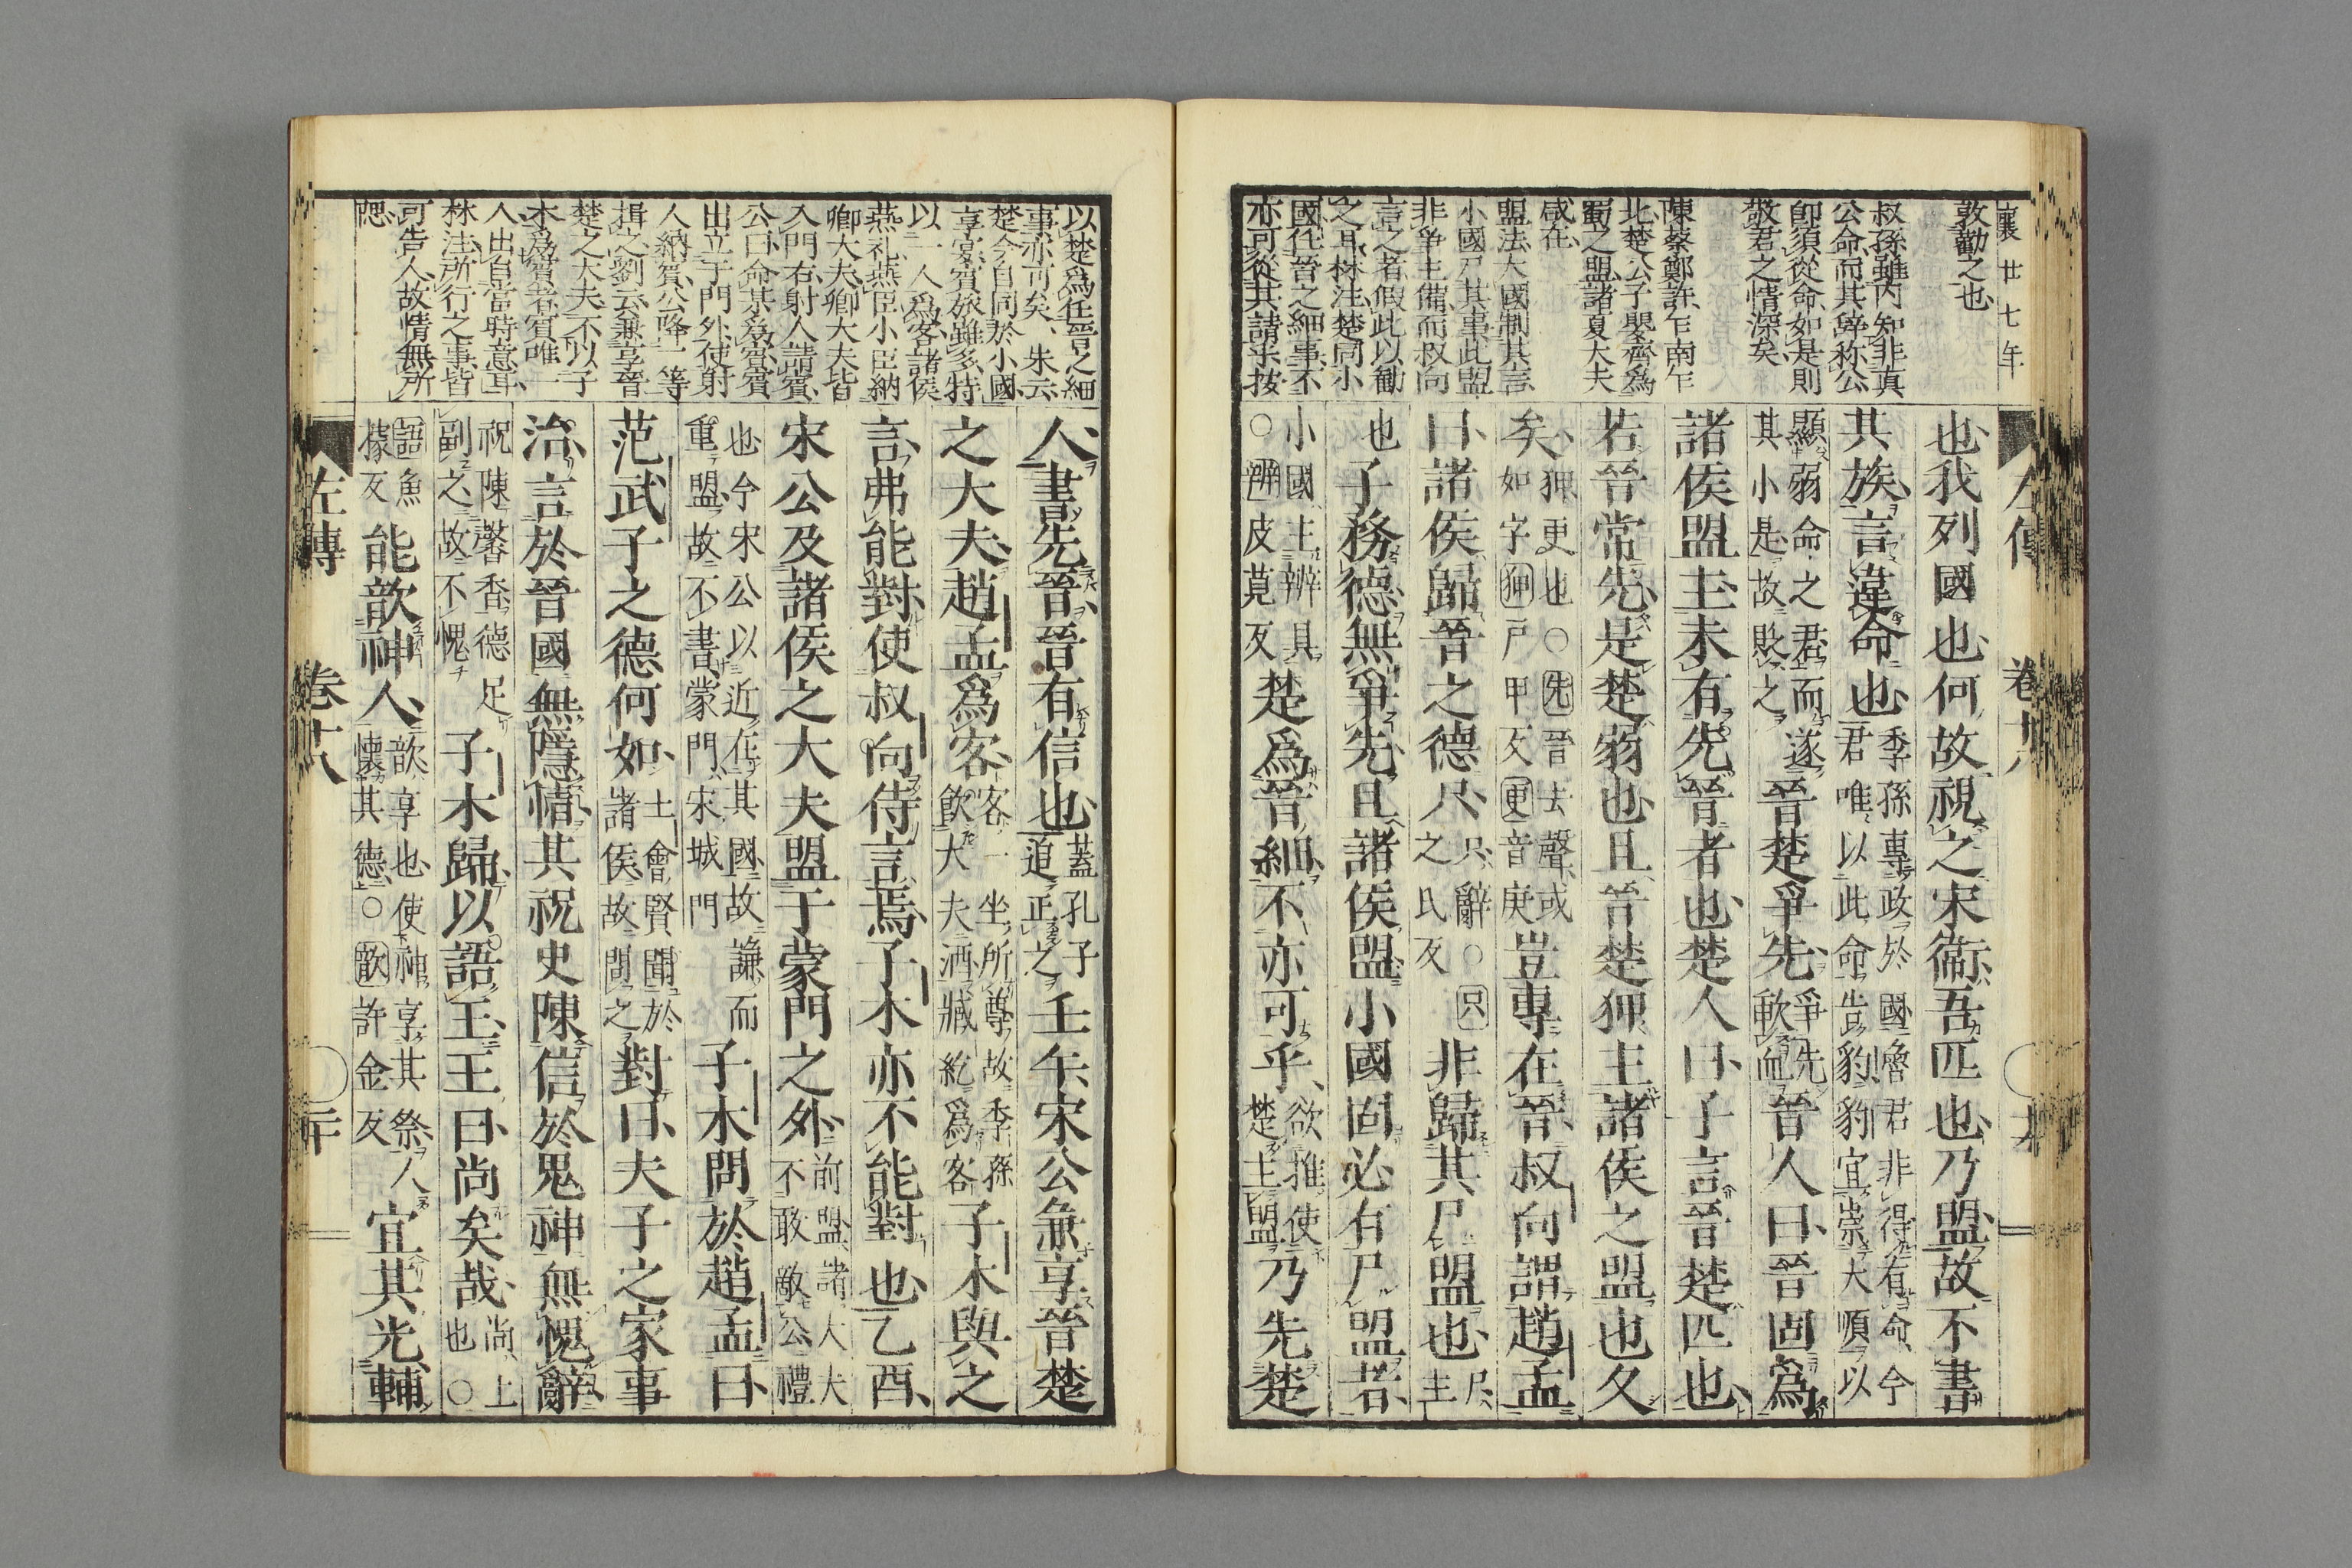 襄廿七年
敦勸之也
叔孫雖内知非真
公命而其辞称公
卽須從命如是則
敬君之情深矣
陳蔡鄭許乍南乍
北楚公子嬰齊爲
蜀之盟諸夏大夫
咸在
盟法大國制其言
小國尸其事此盟
非爭主備而叔向
言之者假此以勸
之耳林注楚同小
國任晉之細事不
亦可從其請乎按
左傳 卷十八
也我列國也何故視之宋衞吾匹也乃盟故不書
其族言違命也季孫專政於國魯君非得有命今君唯以此命告豹豹宜崇大順以
顯弱命之君而遂其小是故敗之晉楚爭先爭先歃血晉人曰晉固爲
諸侯盟主未有先晉者也楚人曰子言晉楚匹也
若晉常先是楚弱也且晉楚狎主諸侯之盟也久
矣狎更也○先晉去聲或如字狎戸甲反更音庚豈專在晉叔向謂趙孟
曰諸侯歸晉之德只只辭○只之氏反非歸其尸盟也尸主
也子務德無爭先且諸侯盟小國固必有尸盟者
小國主辨具○辨皮莧反楚爲晉細不亦可乎欲推使楚主盟乃先楚
以楚爲任晉之細
事亦可矣朱云
楚今自同於小國
享宴賓旅雖多特
以一人爲客諸侯
燕礼燕臣小臣納
卿大夫卿大夫皆
入門右射人請賓
公曰命某爲賓賓
出立于門外使射
人納賓公降一等
揖之劉云兼享晉
楚之大夫不以子
木爲賓者賓唯一
人出自當時意耳
林注所行之事皆
可告人故情無所
隠
人書先晉晉有信也蓋孔子追正之壬午宋公兼享晉楚
之大夫趙孟爲客客一坐所尊故季孫飮大夫酒臧紇爲客子木與之
言弗能對使叔向侍言焉子木亦不能對也乙酉
宋公及諸侯之大夫盟于蒙門之外前盟諸大夫不敢敵公禮
也今宋公以近在其國故謙而重盟故不書蒙門宋城門子木問於趙孟曰
范武子之德何如士會賢聞於諸侯故問之對曰夫子之家事
治言於晉國無隱情其祝史陳信於鬼神無愧辭
祝陳馨香德足副之故不愧子木歸以語王王曰尚矣哉尚上也○
語魚據反能歆神人歆享也使神享其祭人懷其德○歆許金反宜其光輔
左傳 卷十八 二十